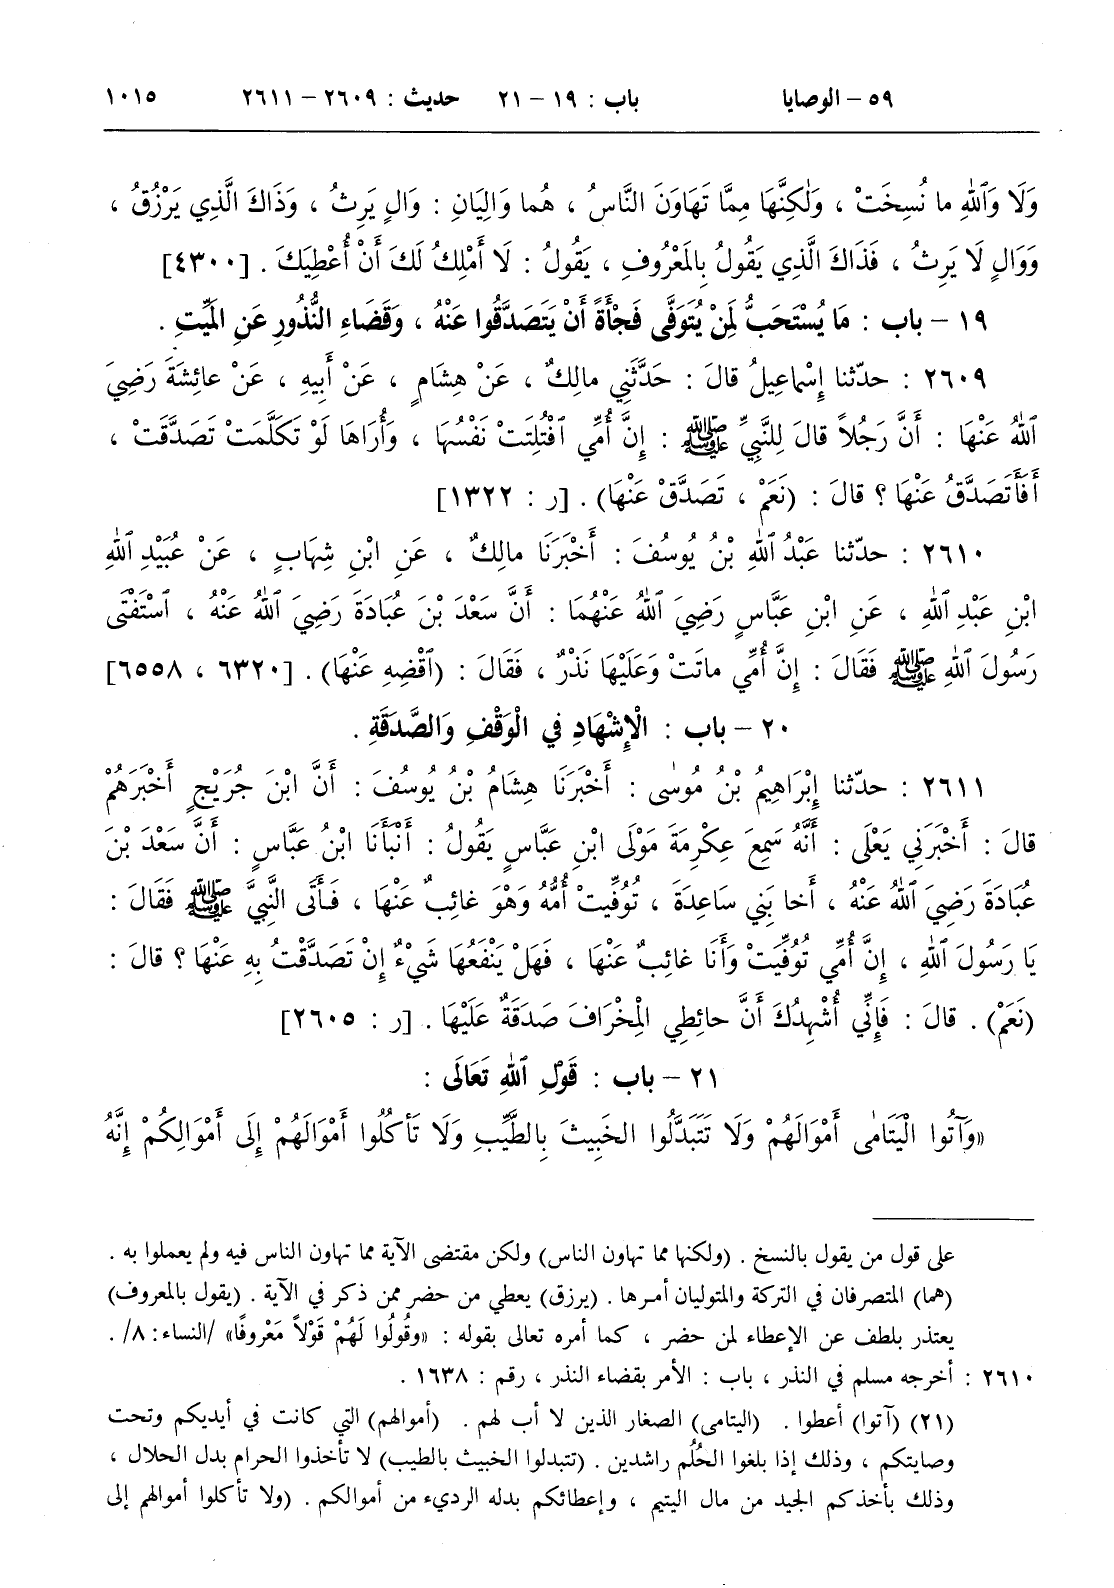 ٥٩ – الوصايا باب : ١٩ – ٢١ حديث : ٢٦٠٩ – ٢٦١١ ١٠١٥
وَلَا وَٱللهِ ما نُسِخَتْ ، وَلٰكِنَّهَا مِمَّا تَهَاوَنَ النَّاسُ ، هُما وَالِيَانِ : وَالٍ يَرِثُ ، وَذَاكَ الَّذِي يَرْزُقُ ،
وَوَالٍ لَا يَرِثُ ، فَذَاكَ الَّذِي يَقُولُ بِالمَعْرُوفِ ، يَقُولُ : لَا أَمْلِكُ لَكَ أَنْ أُعْطِيَكَ . [٤٣٠٠]
١٩ – باب : مَا يُسْتَحَبُّ لِمَنْ يُتَوَفَّى فَجْأَةً أَنْ يَتَصَدَّقُوا عَنْهُ ، وَقَضَاءِ النُّذُورِ عَنِ المَيِّتِ .
٢٦٠٩ : حدّثنا إِسْماعِيلُ قالَ : حَدَّثَنِي مالِكٌ ، عَنْ هِشَامٍ ، عَنْ أَبِيهِ ، عَنْ عائِشَةَ رَضِيَ
ٱللهُ عَنْهَا : أَنَّ رَجُلاً قالَ لِلنَّبِيِّ ﷺ : إِنَّ أُمِّي ٱفْتُلِتَتْ نَفْسُهَا ، وَأُرَاهَا لَوْ تَكَلَّمَتْ تَصَدَّقَتْ ،
أَفَأَتَصَدَّقُ عَنْهَا ؟ قالَ : (نَعَمْ ، تَصَدَّقْ عَنْهَا) . [ر : ١٣٢٢]
٢٦١٠ : حدّثنا عَبْدُ ٱللهِ بْنُ يُوسُفَ : أَخْبَرَنَا مالِكٌ ، عَنِ ابْنِ شِهَابٍ ، عَنْ عُبَيْدِ ٱللهِ
ابْنِ عَبْدِ ٱللهِ ، عَنِ ابْنِ عَبَّاسٍ رَضِيَ ٱللهُ عَنْهُمَا : أَنَّ سَعْدَ بْنَ عُبَادَةَ رَضِيَ ٱللهُ عَنْهُ ، ٱسْتَفْتَى
رَسُولَ ٱللهِ ﷺ فَقَالَ : إِنَّ أُمِّي ماتَتْ وَعَلَيْهَا نَذْرٌ ، فَقَالَ : (ٱقْضِهِ عَنْهَا) . [٦٣٢٠ ، ٦٥٥٨]
٢٠ – باب : الْإِشْهَادِ في الْوَقْفِ وَالصَّدَقَةِ .
٢٦١١ : حدّثنا إِبْرَاهِيمُ بْنُ مُوسٰى : أَخْبَرَنَا هِشَامُ بْنُ يُوسُفَ : أَنَّ ابْنَ جُرَيْجٍ أَخْبَرَهُمْ
قالَ : أَخْبَرَنِي يَعْلَى : أَنَّهُ سَمِعَ عِكْرِمَةَ مَوْلَى ابْنِ عَبَّاسٍ يَقُولُ : أَنْبَأَنَا ابْنُ عَبَّاسٍ : أَنَّ سَعْدَ بْنَ
عُبَادَةَ رَضِيَ ٱللهُ عَنْهُ ، أَخا بَنِي سَاعِدَةَ ، تُوُفِّيَتْ أُمُّهُ وَهْوَ غائِبٌ عَنْهَا ، فَأَتَى النَّبِيَّ ﷺ فَقَالَ :
يَا رَسُولَ ٱللهِ ، إِنَّ أُمِّي تُوُفِّيَتْ وَأَنَا غائِبٌ عَنْهَا ، فَهَلْ يَنْفَعُهَا شَيْءٌ إِنْ تَصَدَّقْتُ بِهِ عَنْهَا ؟ قالَ :
(نَعَمْ) . قالَ : فَإِنِّي أُشْهِدُكَ أَنَّ حائِطِي الْمِخْرَافَ صَدَقَةٌ عَلَيْهَا . [ر : ٢٦٠٥]
٢١ – باب : قَوْلِ ٱللهِ تَعَالَى :
«وَآتُوا الْيَتَامٰى أَمْوَالَهُمْ وَلَا تَتَبَدَّلُوا الخَبِيثَ بِالطَّيِّبِ وَلَا تَأْكُلُوا أَمْوَالَهُمْ إِلَى أَمْوَالِكُمْ إِنَّهُ
على قول من يقول بالنسخ . (ولكنها مما تهاون الناس) ولكن مقتضى الآية مما تهاون الناس فيه ولم يعملوا به .
(هما) المتصرفان في التركة والمتوليان أمرها . (يرزق) يعطي من حضر ممن ذكر في الآية . (يقول بالمعروف)
يعتذر بلطف عن الإعطاء لمن حضر ، كما أمره تعالى بقوله : «وقُولُوا لَهُمْ قَوْلاً مَعْروفًا» /النساء: ٨/ .
٢٦١٠ : أخرجه مسلم في النذر ، باب : الأمر بقضاء النذر ، رقم : ١٦٣٨ .
(٢١) (آتوا) أعطوا . (اليتامى) الصغار الذين لا أب لهم . (أموالهم) التي كانت في أيديكم وتحت
وصايتكم ، وذلك إذا بلغوا الحُلُم راشدين . (تتبدلوا الخبيث بالطيب) لا تأخذوا الحرام بدل الحلال ،
وذلك بأخذكم الجيد من مال اليتيم ، وإعطائكم بدله الرديء من أموالكم . (ولا تأكلوا أموالهم إلى